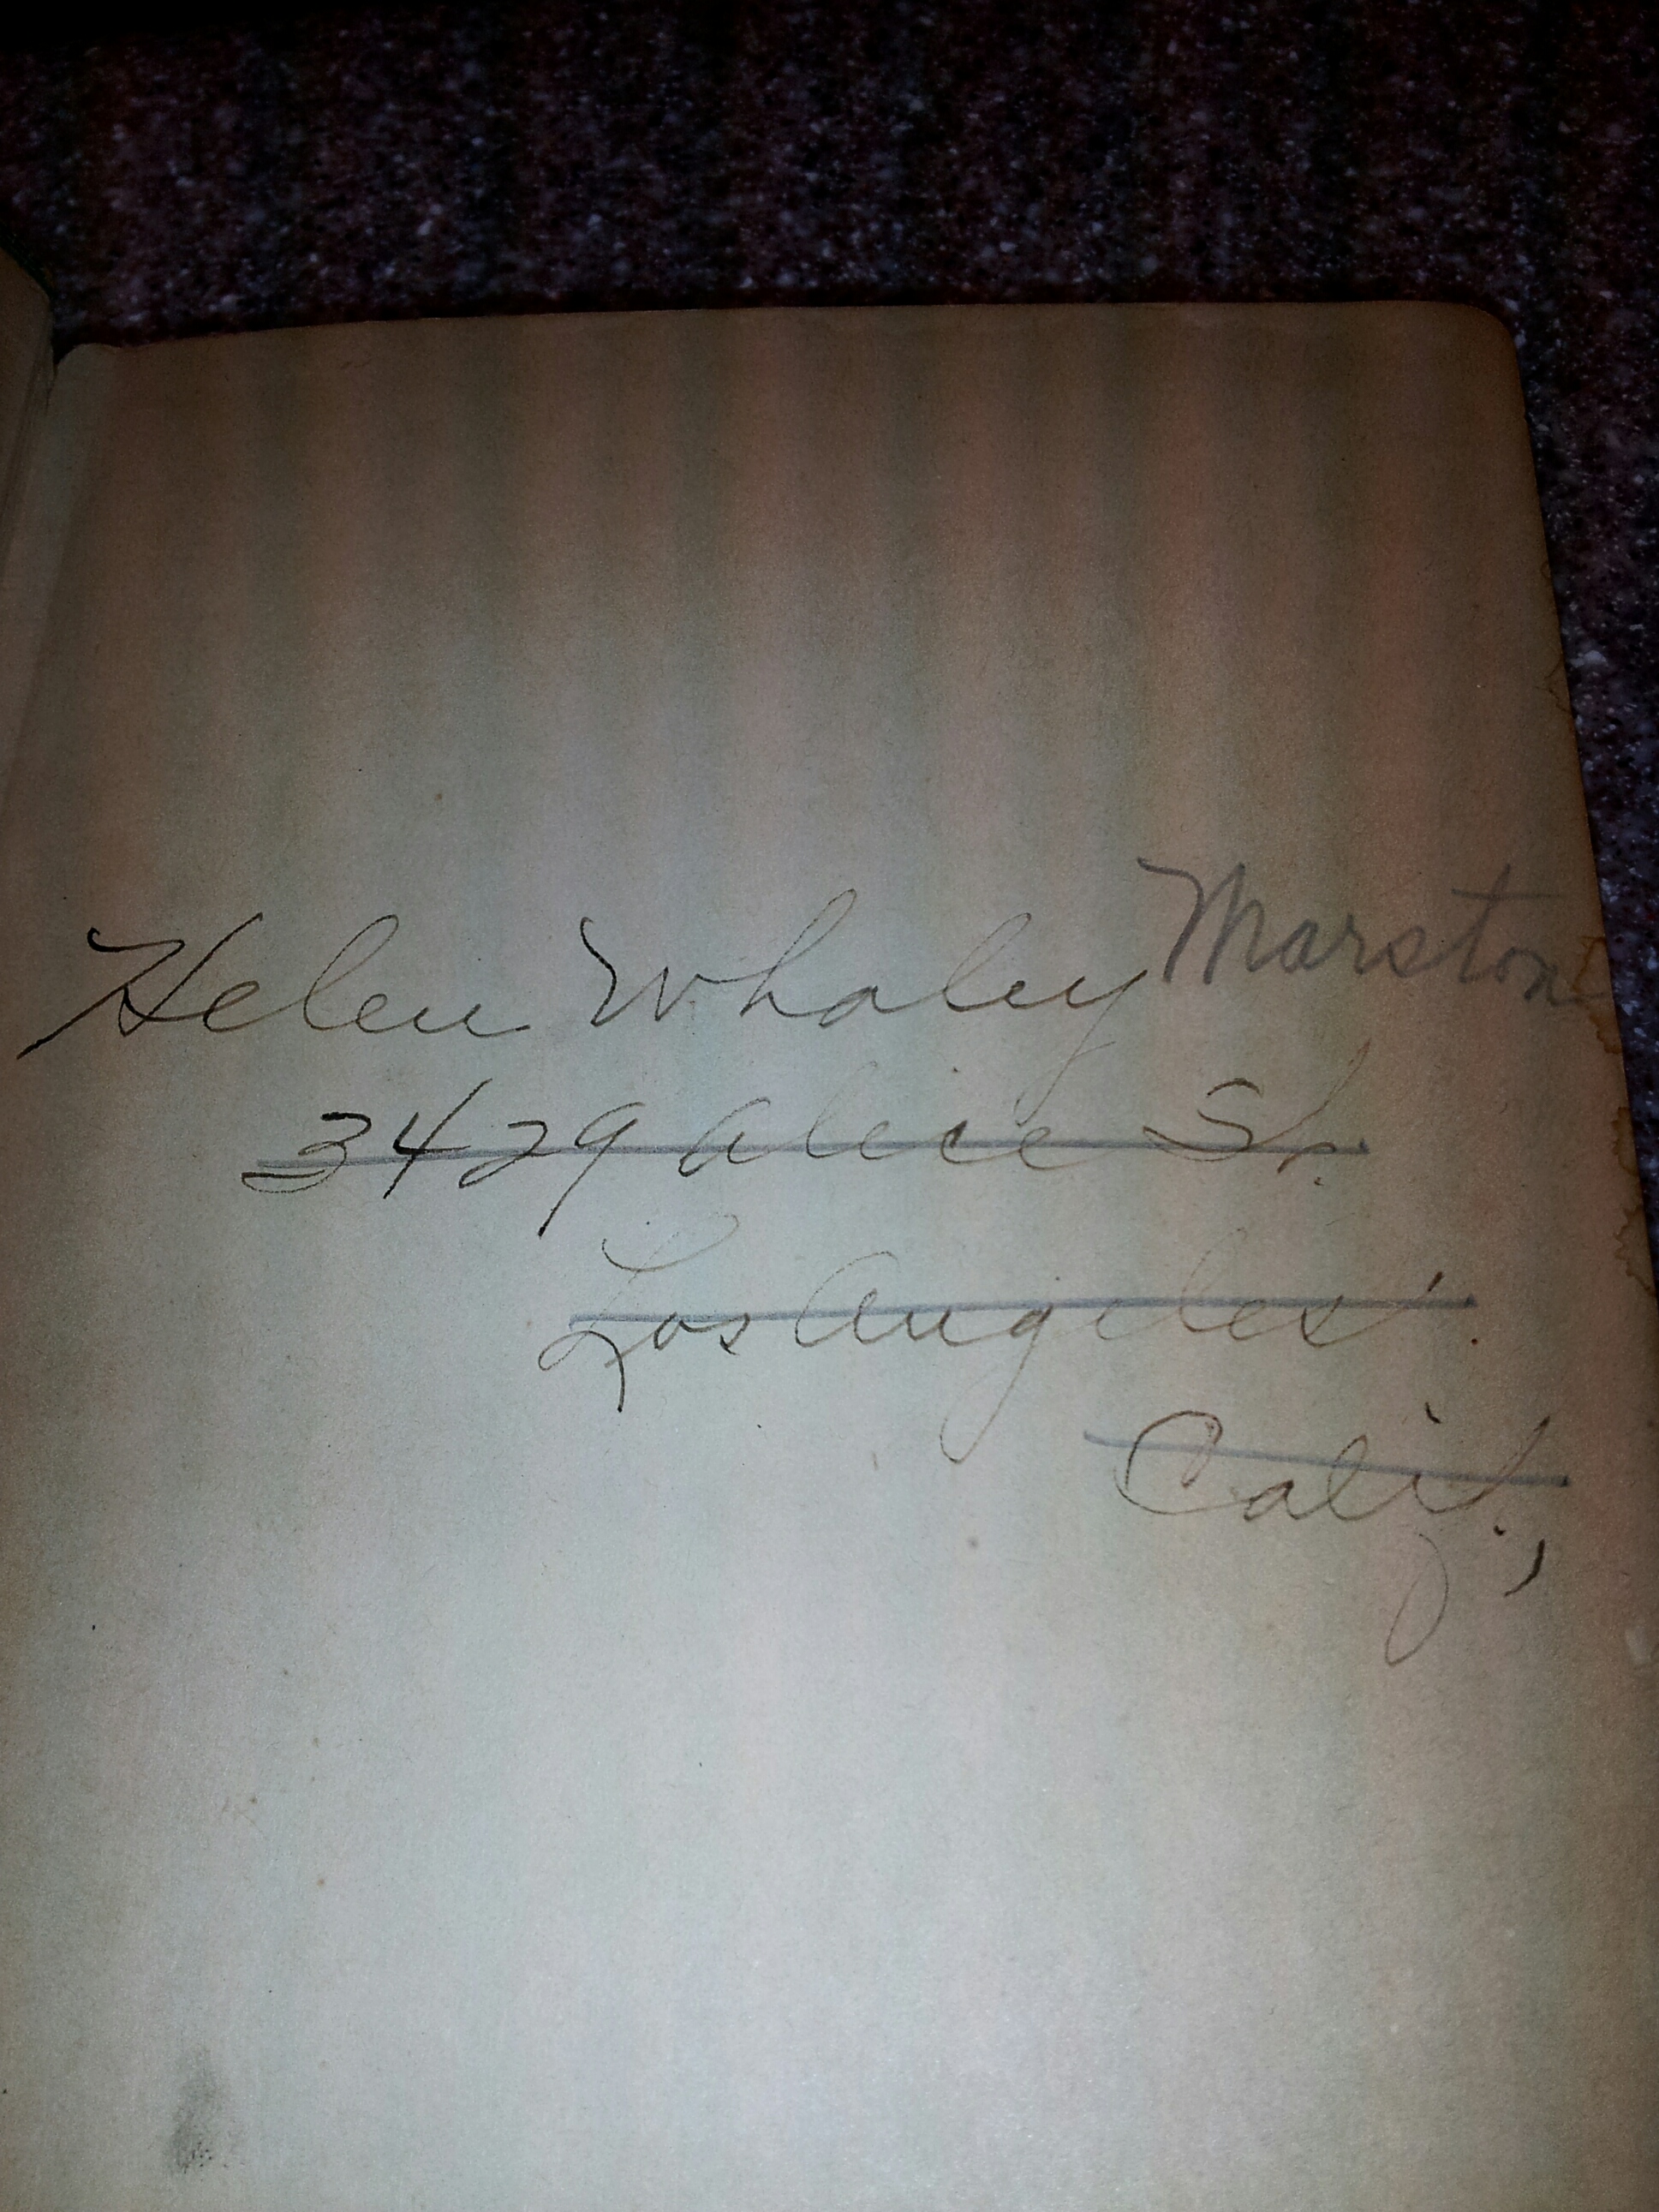 Helen Whaley Marston
3429 Alice St.
Los Angeles.
Calif.,